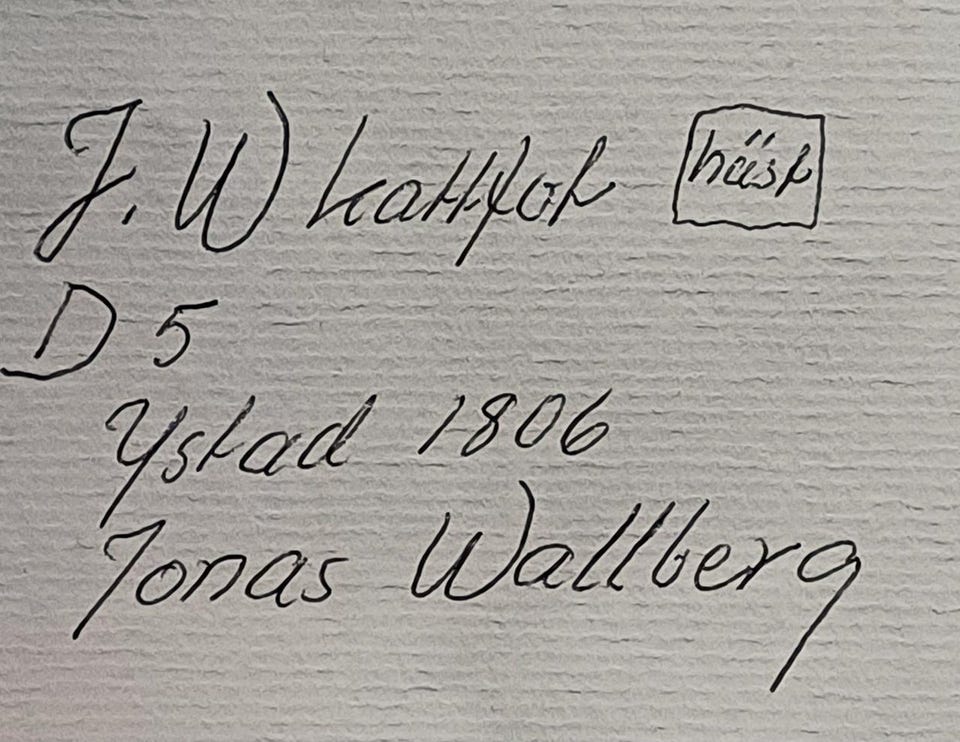 J. W kattfot häst
D 5
Ystad 1806
Jonas Wallberg